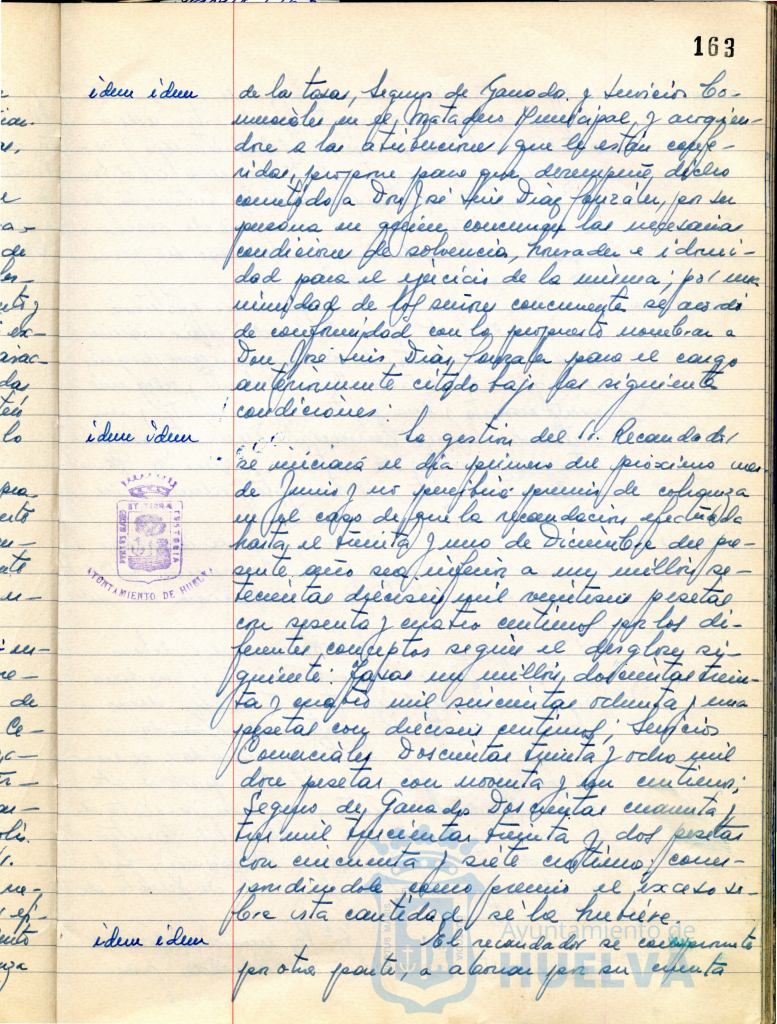 163
idem idem
de las tasas, Seguros de Ganados y Servicios Co-
merciales en el Matadero Municipal, y acogien-
dose a las atribuciones que le están confe-
ridas, propone para que desempeñe dicho
cometido a Don José Luis Díaz González, por ser
persona en quien concurren las necesarias
condiciones de solvencia, honradez e idonei-
dad para el ejercicio de la misma; por una-
nimidad de los señores concurrentes se acordó
de conformidad con lo propuesto nombrar a
Don José Luis Díaz González para el cargo
anteriormente citado bajo las siguientes
condiciones:
idem idem
La gestión del Sr. Recaudador
se iniciará el día primero del próximo mes
de Junio y no percibirá premio de cobranza
en el caso de que la recaudación efectuada
hasta el treinta y uno de Diciembre del pre-
sente año sea inferior a un millón se-
tecientas dieciseis mil veintiseis pesetas
con sesenta y cuatro centimos por los di-
ferentes conceptos según el desglose si-
guiente: Tasas un millón, doscientas trein-
ta y cuatro mil seiscientas ochenta y una
pesetas con dieciseis centimos; Servicios
Comerciales Doscientas treinta y ocho mil
doce pesetas con noventa y un centimos;
Seguro de Ganados Doscientas cuarenta y
tres mil trescientas treinta y dos pesetas
con cincuenta y siete centimos; corres-
pondiendole como premio el exceso so-
bre esta cantidad si la hubiere.
idem idem
El recaudador se compromete
por otra parte, a abonar por su cuenta
AYUNTAMIENTO DE HUELVA
PORTUS MARIS ET TERRAE CUSTODIA
Ayuntamiento de
HUELVA